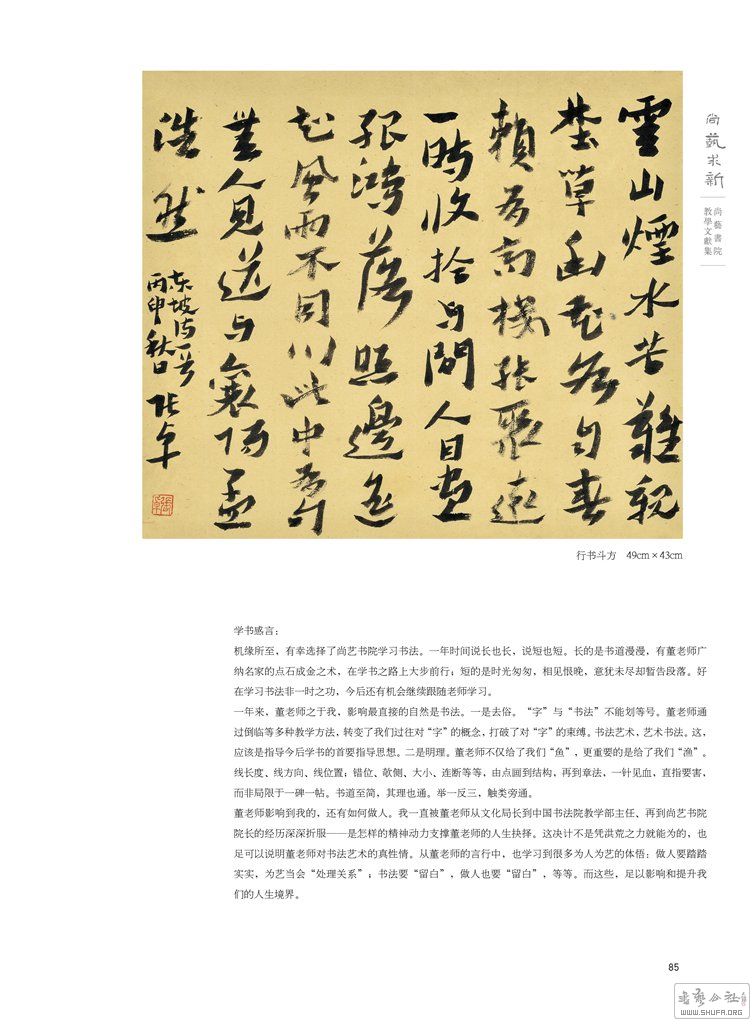 尚藝求新
尚藝書院
教學文獻集
雲山煙水苦難親
埜草幽花各自春
賴有高樓能聚遠
一時收拾与閒人目盡
孤鴻落照邊遙
知風雨不同川此中有句
無人見送与襄陽孟
浩然
东坡诗二首
丙申秋日 张卓
行书斗方 49cm×43cm
学书感言：
机缘所至，有幸选择了尚艺书院学习书法。一年时间说长也长，说短也短。长的是书道漫漫，有董老师广
纳名家的点石成金之术，在学书之路上大步前行；短的是时光匆匆，相见恨晚，意犹未尽却暂告段落。好
在学习书法非一时之功，今后还有机会继续跟随老师学习。
一年来，董老师之于我，影响最直接的自然是书法。一是去俗。“字”与“书法”不能划等号。董老师通
过倒临等多种教学方法，转变了我们过往对“字”的概念，打破了对“字”的束缚。书法艺术，艺术书法。这，
应该是指导今后学书的首要指导思想。二是明理。董老师不仅给了我们“鱼”，更重要的是给了我们“渔”。
线长度、线方向、线位置；错位、欹侧、大小、连断等等，由点画到结构，再到章法，一针见血，直指要害，
而非局限于一碑一帖。书道至简，其理也通。举一反三，触类旁通。
董老师影响到我的，还有如何做人。我一直被董老师从文化局长到中国书法院教学部主任、再到尚艺书院
院长的经历深深折服——是怎样的精神动力支撑董老师的人生抉择。这决计不是凭洪荒之力就能为的，也
足可以说明董老师对书法艺术的真性情。从董老师的言行中，也学习到很多为人为艺的体悟：做人要踏踏
实实，为艺当会“处理关系”；书法要“留白”，做人也要“留白”，等等。而这些，足以影响和提升我
们的人生境界。
85
書藝公社
WWW.SHUFA.ORG